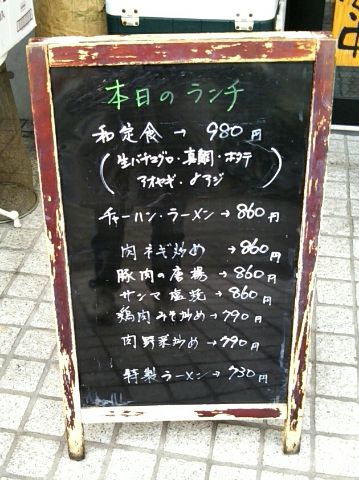 本日のランチ
和定食→980円
(生バチマグロ・真鯛・ホタテ
アオヤギ・〆アジ)
チャーハン・ラーメン→860円
肉ネギ炒め→860円
豚肉の唐揚→860円
サンマ塩焼→860円
鶏肉みそ炒め→790円
肉野菜炒め→790円
特製ラーメン→730円
中